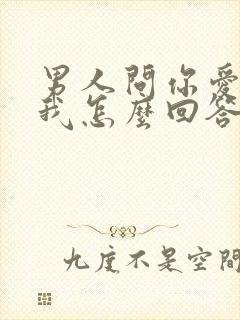 男人問你愛
我怎麼回答
九度不是空間